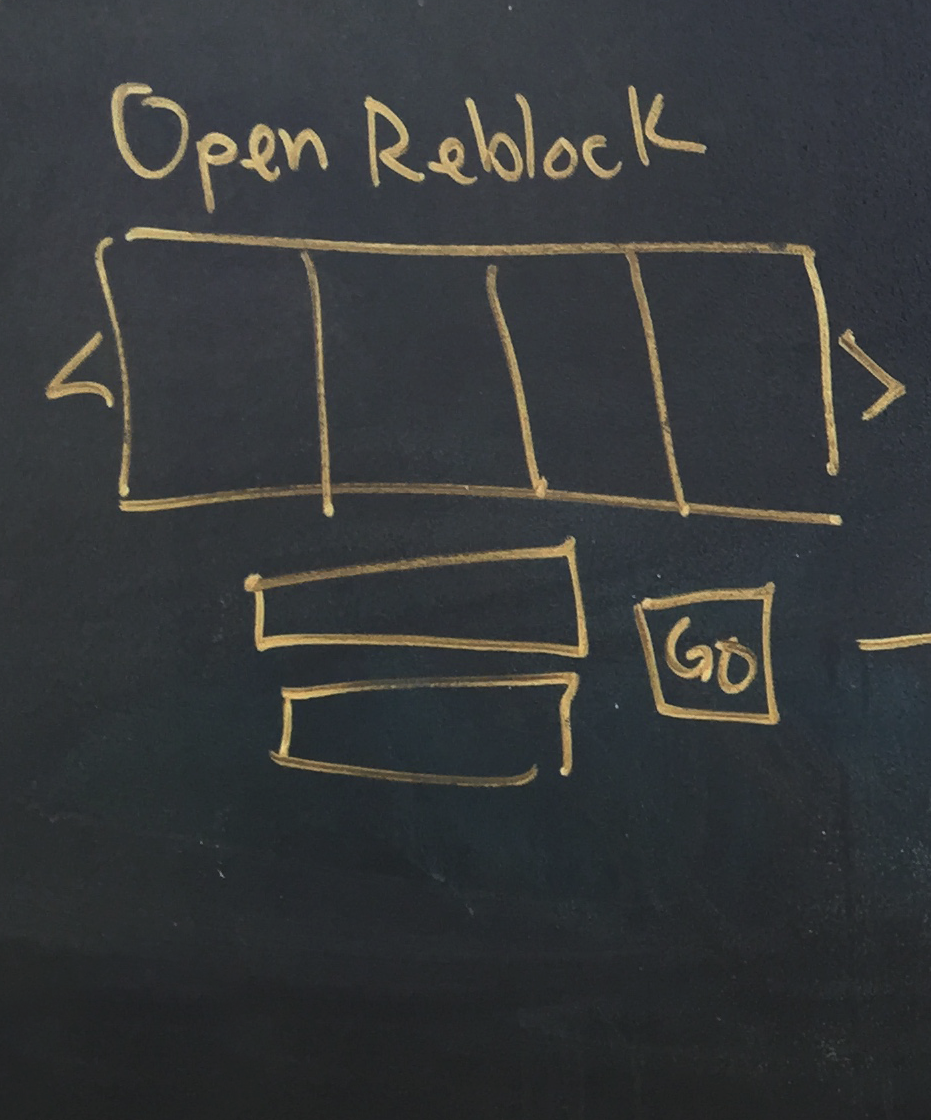 Open Reblock
< >
GO